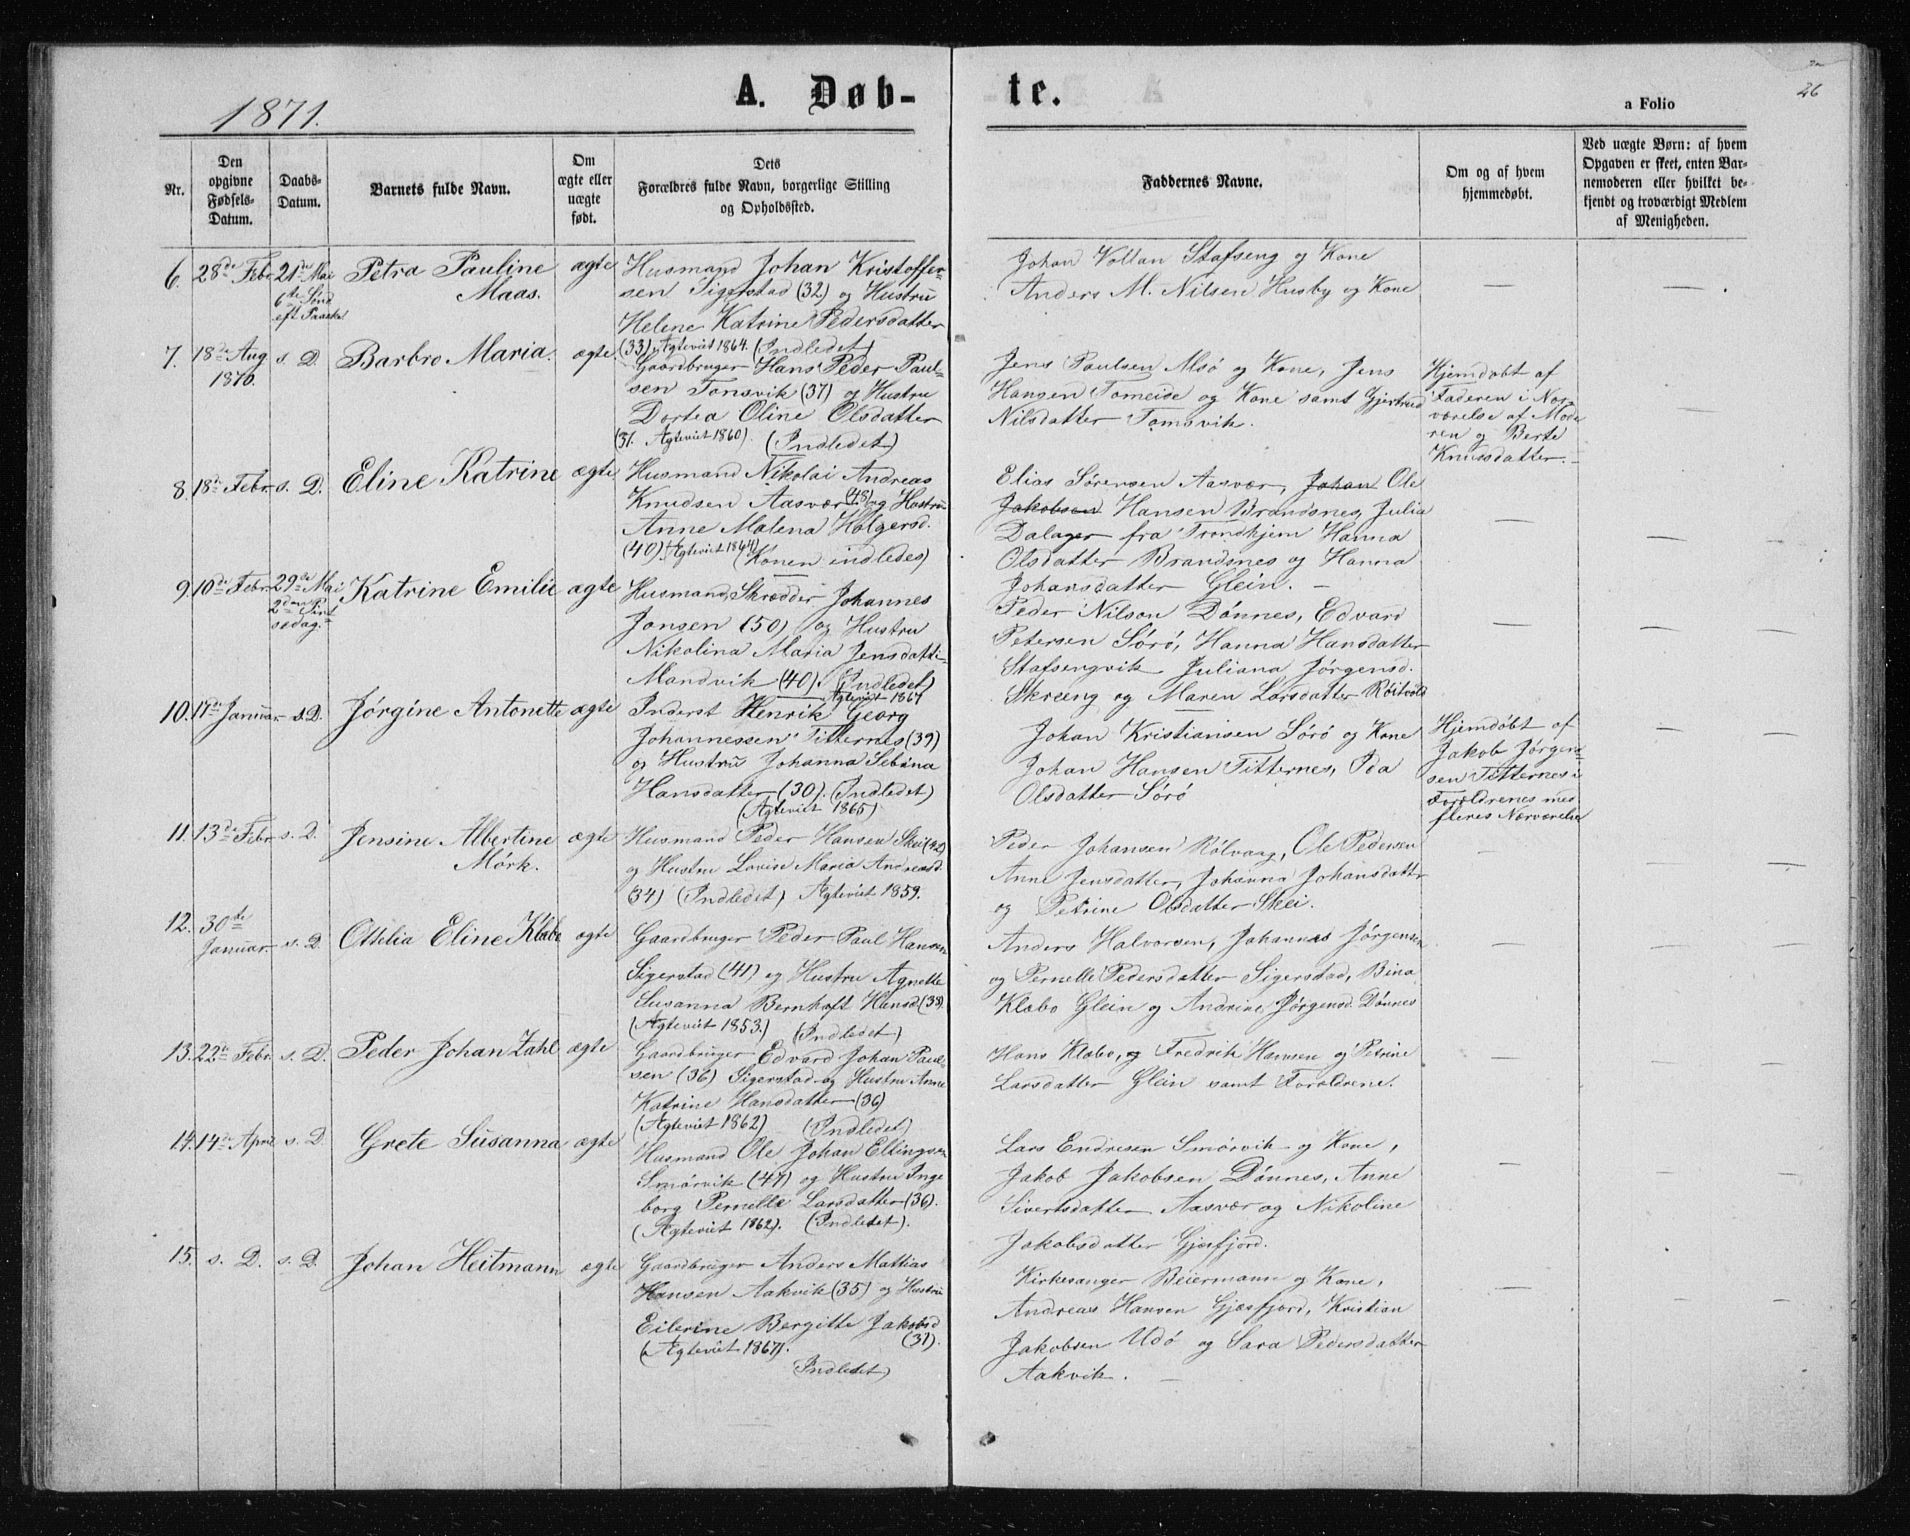 1871.
A. Døb-
te.
a Folio
26
Nr.
Den opgivne Fødsels-Datum.
Daabs-Datum.
Barnets fulde Navn.
Om ægte eller uægte født.
Dets Forældres fulde Navn, borgerlige Stilling og Opholdssted.
Faddernes Navne.
Om og af hvem hjemmedøbt.
Ved uægte Børn: af hvem Opgaven er skeet, enten Barnemoderen eller hvilket bekjendt og troværdigt Medlem af Menigheden.
6. 28de Febr. 21de Mai 6te Sønd eft Paaske. Petra Pauline Maas. ægte
Husmand Johan Kristoffer-
sen Sigerstad (32) og Hustru
Helene Katrine Pedersdatter
(33) Ægteviet 1864. (Indledet)
Johan Vollan Stafseng og Kone
Anders M. Nilsen Husby og Kone
— —
7. 18de Aug 1870. s. D. Barbro Maria. ægte
Gaardbruger Hans Peder Paul-
sen Tomsvik (37) og Hustru
Dortea Oline Olsdatter
(31. Ægteviet 1860). (Indledet)
Jens Paulsen Msø og Kone, Jens
Hansen Tomeide og Kone samt Gjertrud
Nilsdatter Tomsvik.
Hjemdøbt af
Faderen i Nær-
værelse af Mode
ren og Berte
Knudsdatter.
—
8. 18de Febr. s. D. Eline Katrine ægte
Husmand Nikolai Andreas
Knudsen Aasvær (48) og Hustru
Anne Malena Holgersd.
(40). (Ægteviet 1864) (Konen indledes)
Elias Sørensen Aasvær, Johan Ole
Jakobsen Hansen Brandsnes, Julia
Dalager fra Trondhjem Hanna
Olsdatter Brandsnes og Hanna
Johansdatter Glein.
— —
9. 10de Febr. 29de Mai 2den Pintsedag. Katrine Emilie ægte
Husmand, Skrædder Johannes
Jonsen (50) og Hustru
Nikolina Maria Jensdatt.
Mandvik (40). (Indledet)
Ægteviet 1867
Peder Nilsen Dønnes, Edvard
Petersen Sørø, Hanna Hansdatter
Stafsengvik Juliana Jørgensd.
Skreeng og Maren Larsdatter Røitvold
— —
10. 17de Januar s. D. Jørgine Antonette ægte
Inderst Henrik Georg
Johannessen Titternes (39)
og Hustru Johanna Sebina
Hansdatter (30). (Indledet)
(Ægteviet 1865)
Johan Kristiansen Sørø og Kone
Johan Hansen Titternes, Ida
Olsdatter Sørø
Hjemdøbt af
Jakob Jørgen-
sen Titternes i
Forældrenes med
fleres Nærværelse
—
11. 13de Febr s. D. Jensine Albertine Mørk. ægte
Husmand Peder Hansen Skei (42)
og Hustru Lovise Maria Andreasd.
(34) (Indledet) Ægteviet 1859.
Peder Johansen Rølvaag, Ole Pedersen
Anne Jensdatter, Johanna Johansdatter
og Petrine Olsdatter Skei.
— —
12. 30te Januar. s. D. Ottelia Eline Klæbo ægte
Gaardbruger Peder Paul Hansen
Sigerstad (41) og Hustru Agnette
Susanna Bernhoft Hansd (38)
(Ægteviet 1853.) (Indledet)
Anders Halvorsen, Johannes Jørgensen
og Pernelle Pedersdatter Sigerstad, Bina
Klæbo Glein og Andrine Jørgensd. Dønnes
— —
13. 22de Febr. s. D. Peder Johan Zahl ægte
Gaardbruger Edvard Johan Paul-
sen (36) Sigerstad og Hustru Anne
Katrine Hansdatter (36)
(Ægteviet 1862) (Indledet)
Hans Klæbo, og Fredrik Hansen og Petrine
Larsdatter Glein samt Forældrene.
— —
14. 14de April s. D. Grete Susanna ægte
Husmand Ole Johan Ellingsen
Smørvik (47) og Hustru Inge
borg Pernelle Larsdatter (36).
(Ægteviet 1862). (Indledet).
Lars Endresen Smørvik og Kone,
Jakob Jakobsen Dønnes, Anne
Sivertsdatter Aasvær og Nikoline
Jakobsdatter Gjæsfjord.
— —
15. s. D. s. D. Johan Heitmann ægte
Gaardbruger Anders Mathias
Hansen Aakvik (35) og Hustru
Eilerine Bergitte Jakobsd
(31).
(Ægteviet 1867).
Indledet)
Kirkesanger Beiermann og Kone,
Andreas Hansen Gjæsfjord, Kristian
Jakobsen Udø og Sara Pedersdatter
Aakvik.
— —